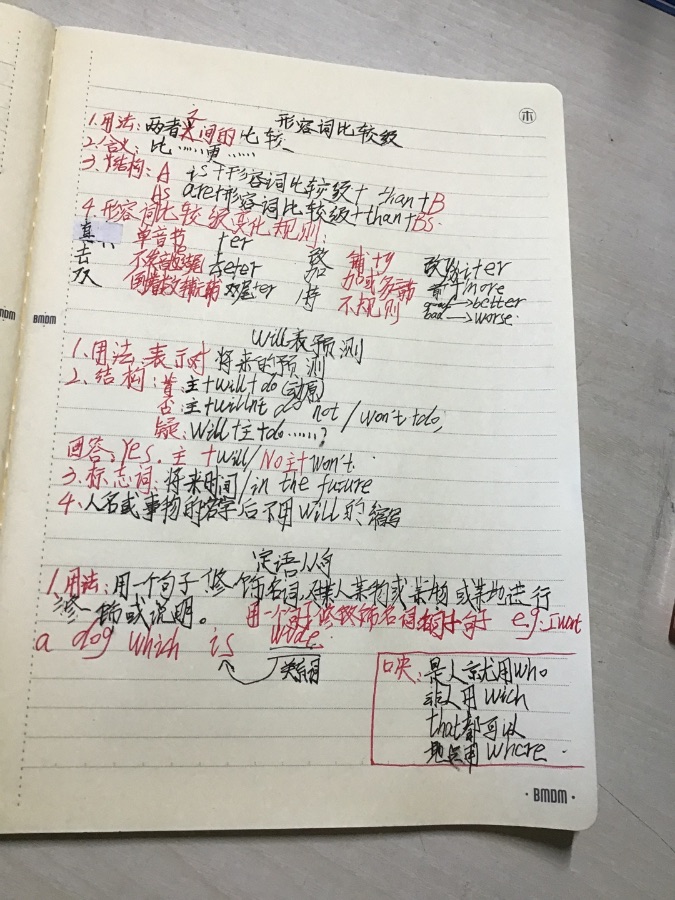 木
形容词比较级
1.用法:两者之间的比较
2.含义:比……更……
3.结构:A is+形容词比较级+than+B
As are+形容词比较级+than+Bs.
4.形容词比较级变化规则:
直 单音节 +er 改 辅+y 改y为i+er
去 不发音e结尾 加 加 more
双 双尾+er 特 不规则 good→better
bad→worse.
BMDM
will表预测
1.用法:表示对将来的预测
2.结构:肯:主+will+do(动原)
否:主+will not /won't+do,
疑:Will+主+do……?
回答:Yes,主+will/No主+won't.
3.标志词:将来时间/in the future
4.人名或事物的名字后不用will的缩写
定语从句
1.用法:用一个句子修饰名词,对某人某物或某地进行
修饰或说明。
用一个句子修饰名词 句子 e.g.I want
a dog which is
关系词
口决:是人就用who
非人用wich
that都可以
地点用where.
·BMDM·